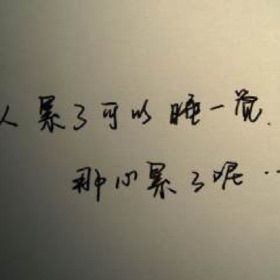 人累了可以睡一觉.
那心累了呢…